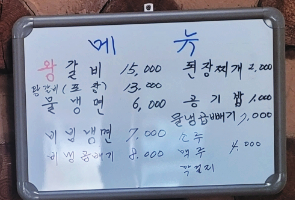 메 뉴
왕 갈비 15,000
왕갈비(포장) 13,000
물 냉면 6,000
비빔냉면 7,000
비냉곱빼기 8,000
된장찌개 2,000
공기밥 1,000
물냉곱빼기 7,000
소주
맥주 4,000
막걸리